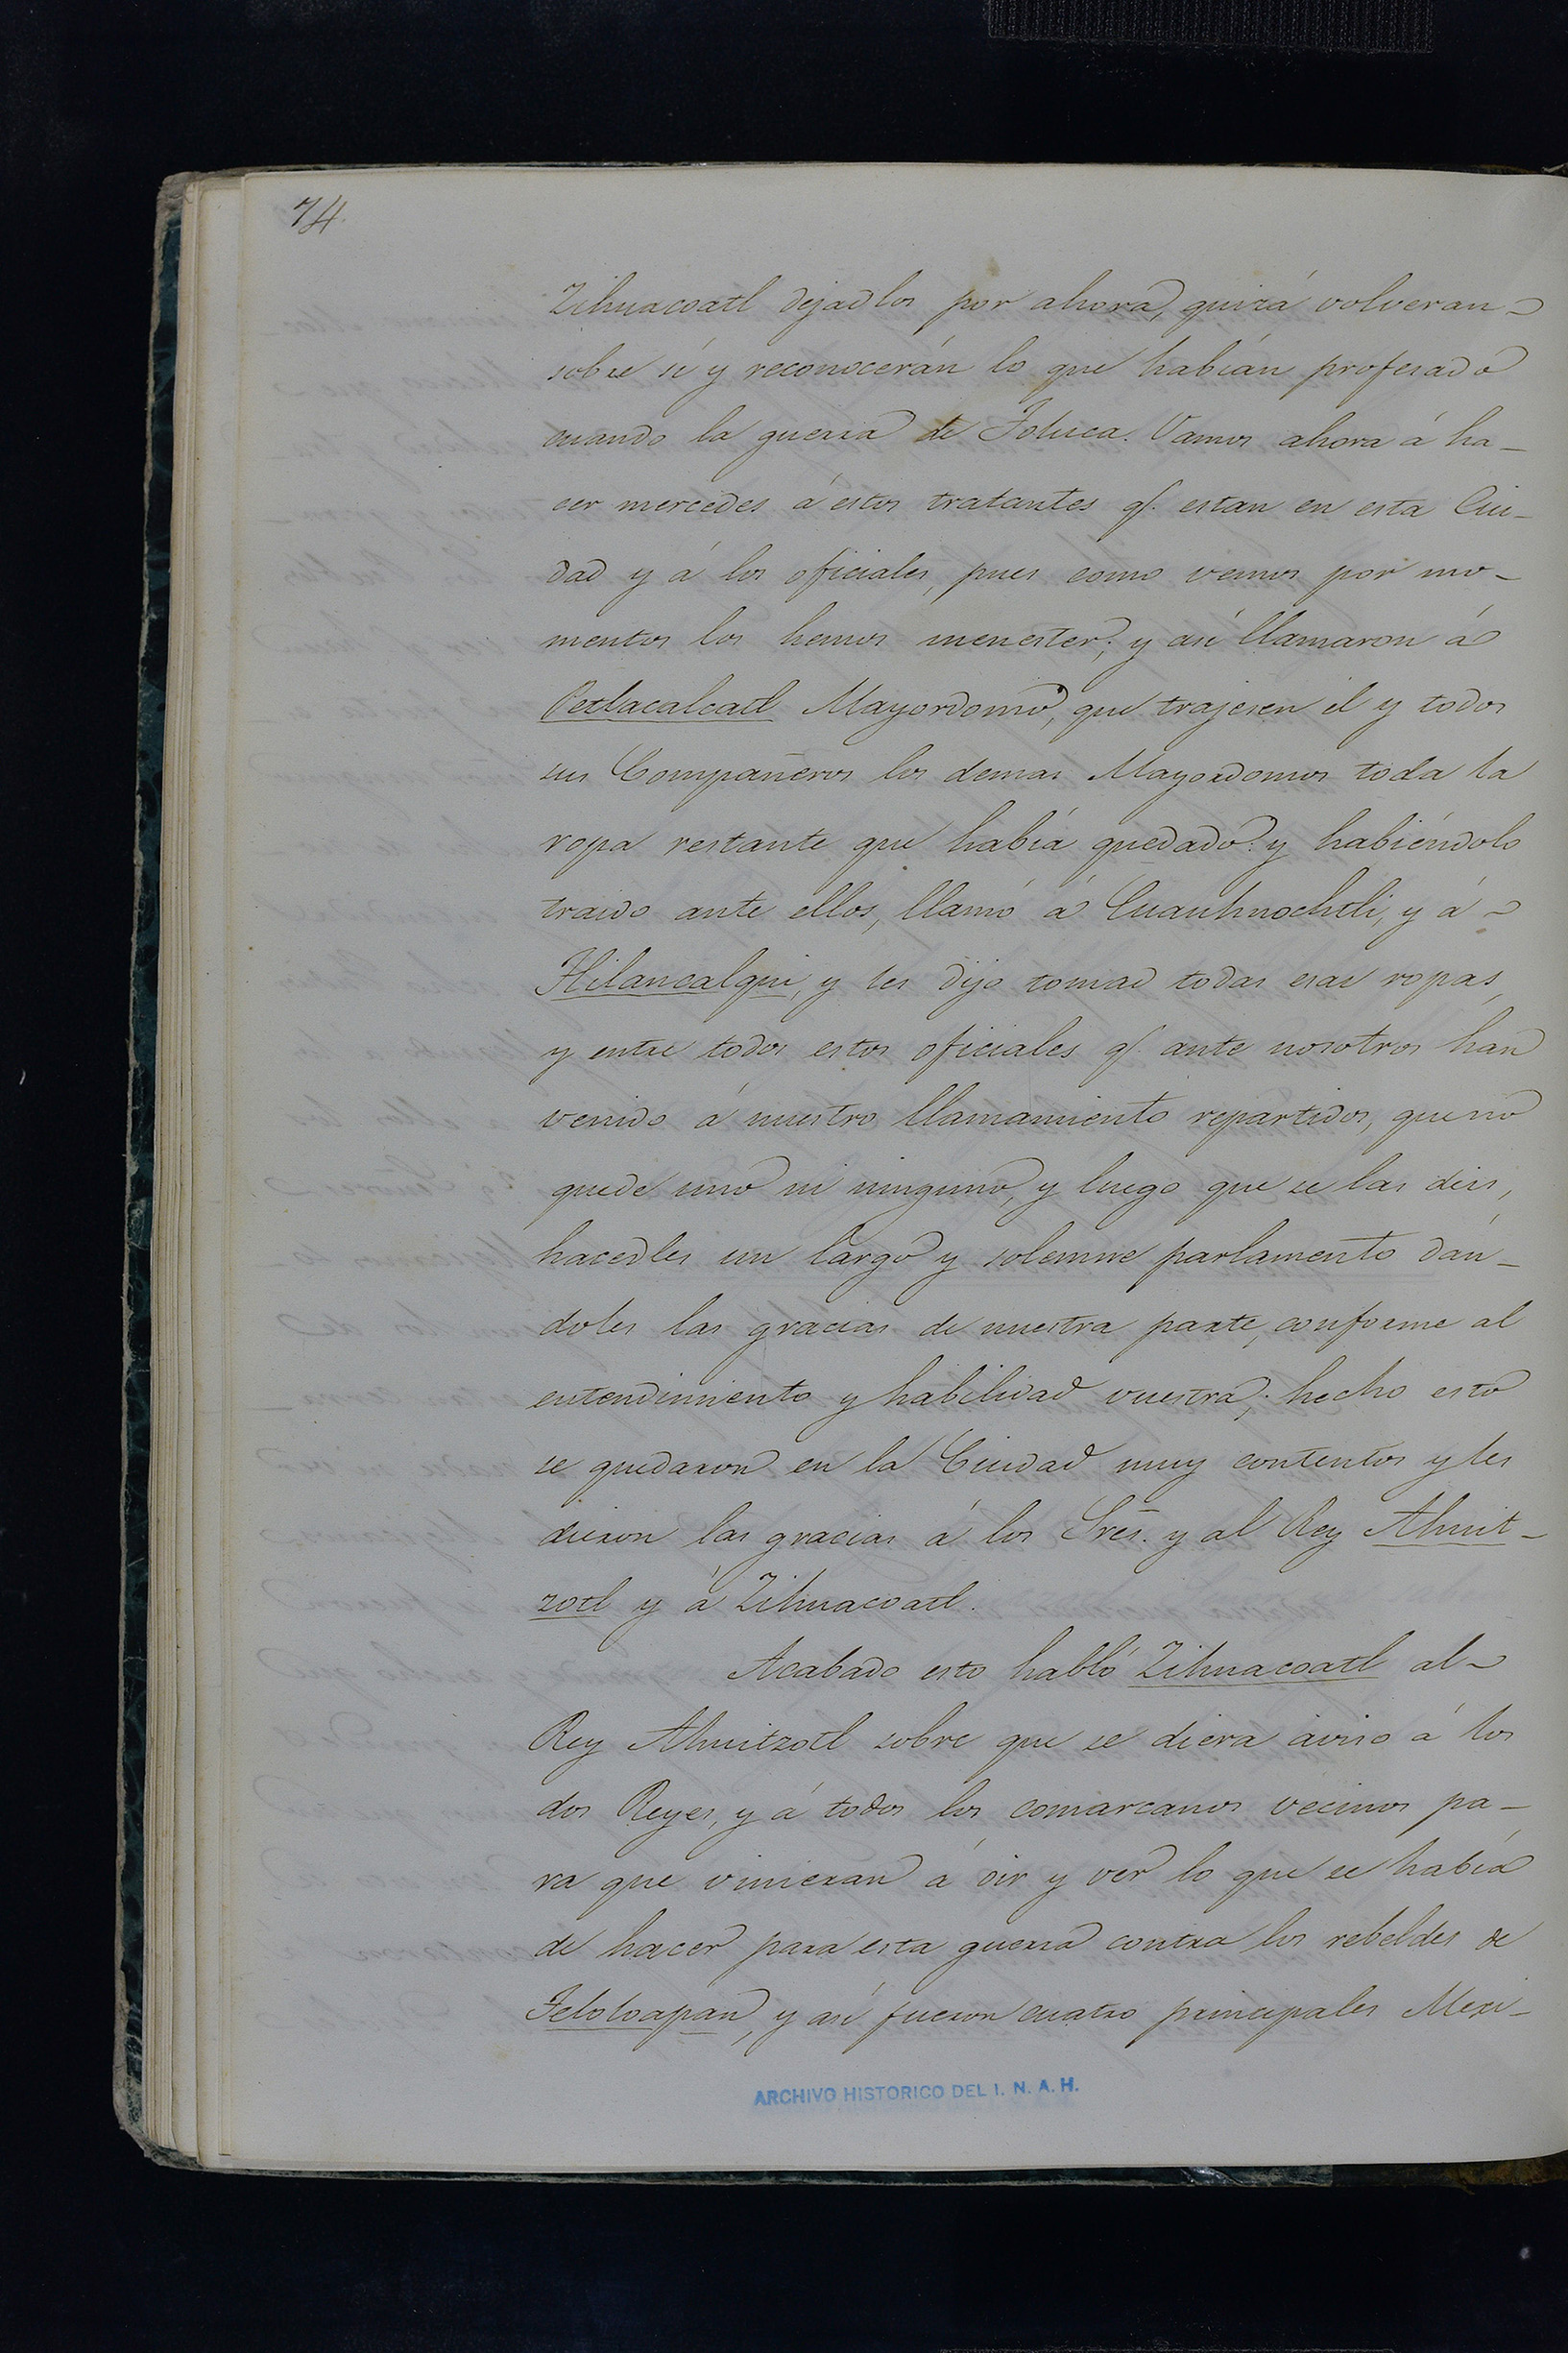 74.
Zihuacoatl dejadlos por ahora, quizá volveran-
sobre sí y reconocerán lo que habían profesado
cuando la guerra de Toluca. Vamos ahora á ha-
cer mercedes á estos tratantes q. estan en esta Ciu-
dad y á los oficiales, pues como vemos por mo-
mentos los hemos menester; y así llamaron á
Petlacalcatl Mayordomo, que trajesen él y todos
sus Compañeros los demas Mayordomos toda la
ropa restante que había quedado: y habiéndolo
traido ante ellos, llamó á Cuauhnochtli, y á-
Tlilancalqui, y les dijo tomad todas esas ropas,
y entre todos estos oficiales q. ante nosotros han
venido á nuestro llamamiento repartidos, que no
quede uno ni ninguno, y luego que se las deis,
hacedles un largo y solemne parlamento dán-
doles las gracias de nuestra parte, conforme al
entendimiento y habilidad vuestra; hecho esto
se quedaron en la Ciudad muy contentos y les
dieron las gracias á los Sres. y al Rey Ahuit-
zotl y á Zihuacoatl.
Acabado esto habló Zihuacoatl al-
Rey Ahuitzotl sobre que se diera aviso á los
dos Reyes, y á todos los comarcanos vecinos pa-
ra que vinieran á oir y ver lo que se había
de hacer para esta guerra contra los rebeldes de
Teloloapan, y así fueron cuatro principales Mexi-
ARCHIVO HISTORICO DEL I. N. A. H.